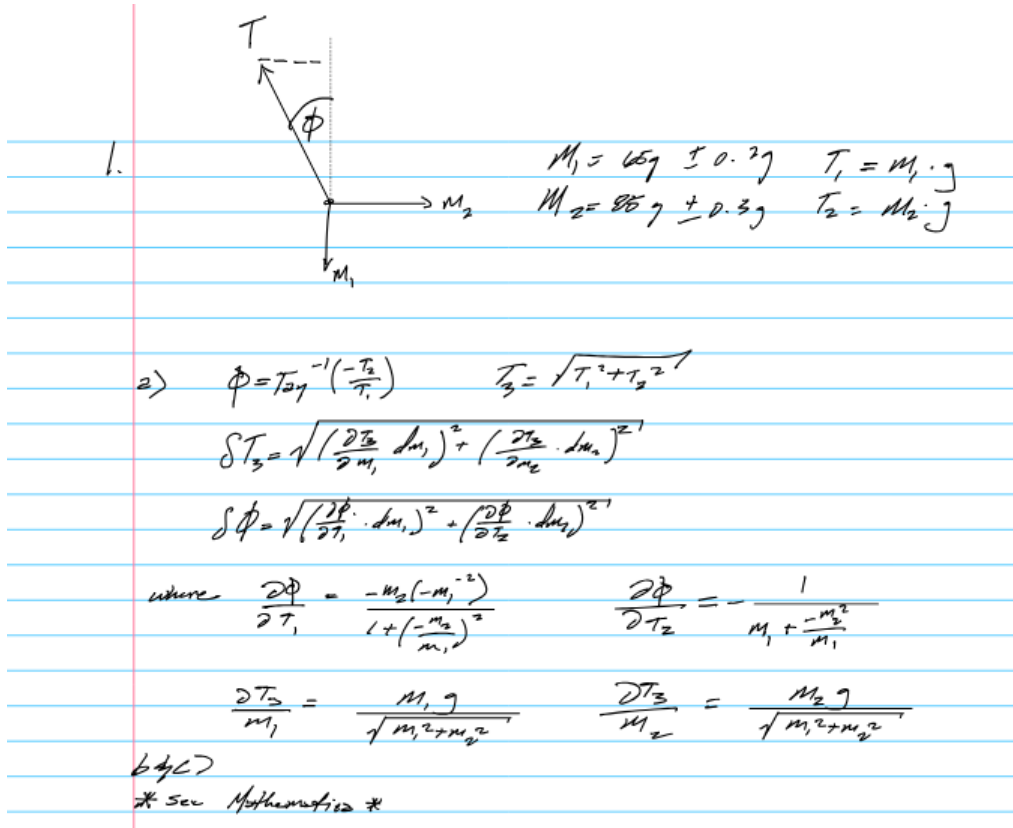 T
ϕ
1. M₁ = 65g ± 0.2g T₁ = m₁ · g
M₂ = 85g ± 0.3g T₂ = M₂ · g
M₂
M₁
a) ϕ = Tan⁻¹(-T₂/T₁) T₃ = √(T₁² + T₂²)
δT₃ = √((∂T₃/∂m₁ dm₁)² + (∂T₃/∂m₂ · dm₂)²)
δϕ = √((∂ϕ/∂T₁ · dm₁)² + (∂ϕ/∂T₂ · dm₂)²)
where ∂ϕ/∂T₁ = -m₂(-m₁⁻²)/(1+(-m₂/m₁)²) ∂ϕ/∂T₂ = - 1/(m₁ + -m₂²/m₁)
∂T₃/m₁ = m₁g/√(m₁²+m₂²) ∂T₃/m₂ = m₂g/√(m₁²+m₂²)
b & c)
* see Mathematica *